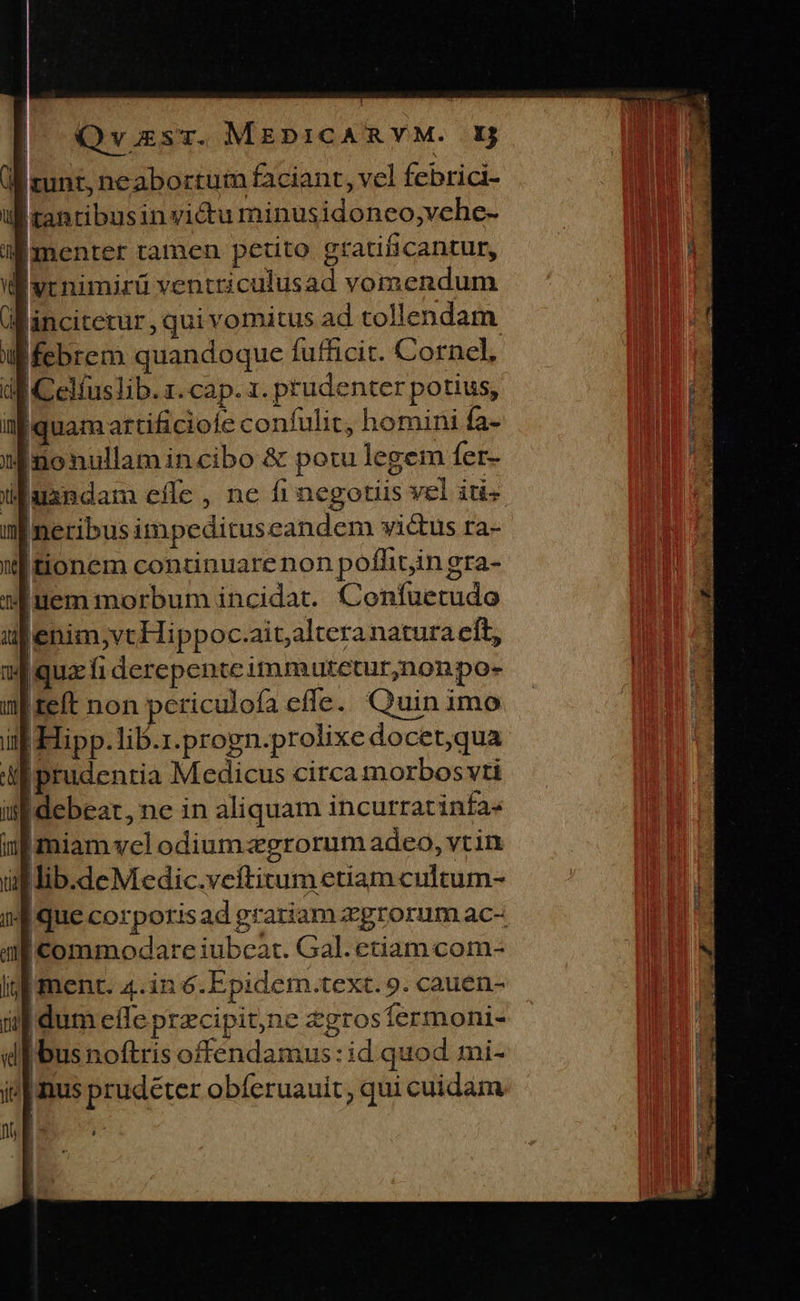 QVÆST. MEDICARVM. 13
runt, ne abortum faciant, vel febrici-
tantibus in victu minus idoneo, vehe-
menter tamen petito gratificantur,
vt nimirũ ventriculus ad vomendum
incitetur, qui vomitus ad tollendam
febrem quandoque ſufficit. Cornel.
Celſus lib. 1. cap. 1. prudenter potius,
quam artificioſe conſulit, homini ſa-
no nullam in cibo & potu legem ſer-
uandam eſſe , ne ſi negotiis vel iti-
neribus impeditus eandem victus ra-
tionem continuare non poſſit, in gra-
uem morbum incidat. Conſuetudo
enim, vt Hippoc. ait, altera natura eſt,
quæ ſi derepente immutetur, non po-
teſt non periculoſa eſſe. Quin imo
Hipp. lib. 1. progn. prolixe docet, qua
prudentia Medicus circa morbos vti
debeat, ne in aliquam incurrat infa-
miam vel odium ægrorum adeo, vt in
lib. de Medic. veſtitum etiam cultum-
que corporis ad gratiam ægrorum ac-
commodare iubeat. Gal. etiam com-
ment. 4. in 6. Epidem. text. 9. cauen-
dum eſſe præcipit, ne ægros ſermoni-
bus noſtris offendamus: id quod mi-
nus prudẽter obſeruauit, qui cuidam